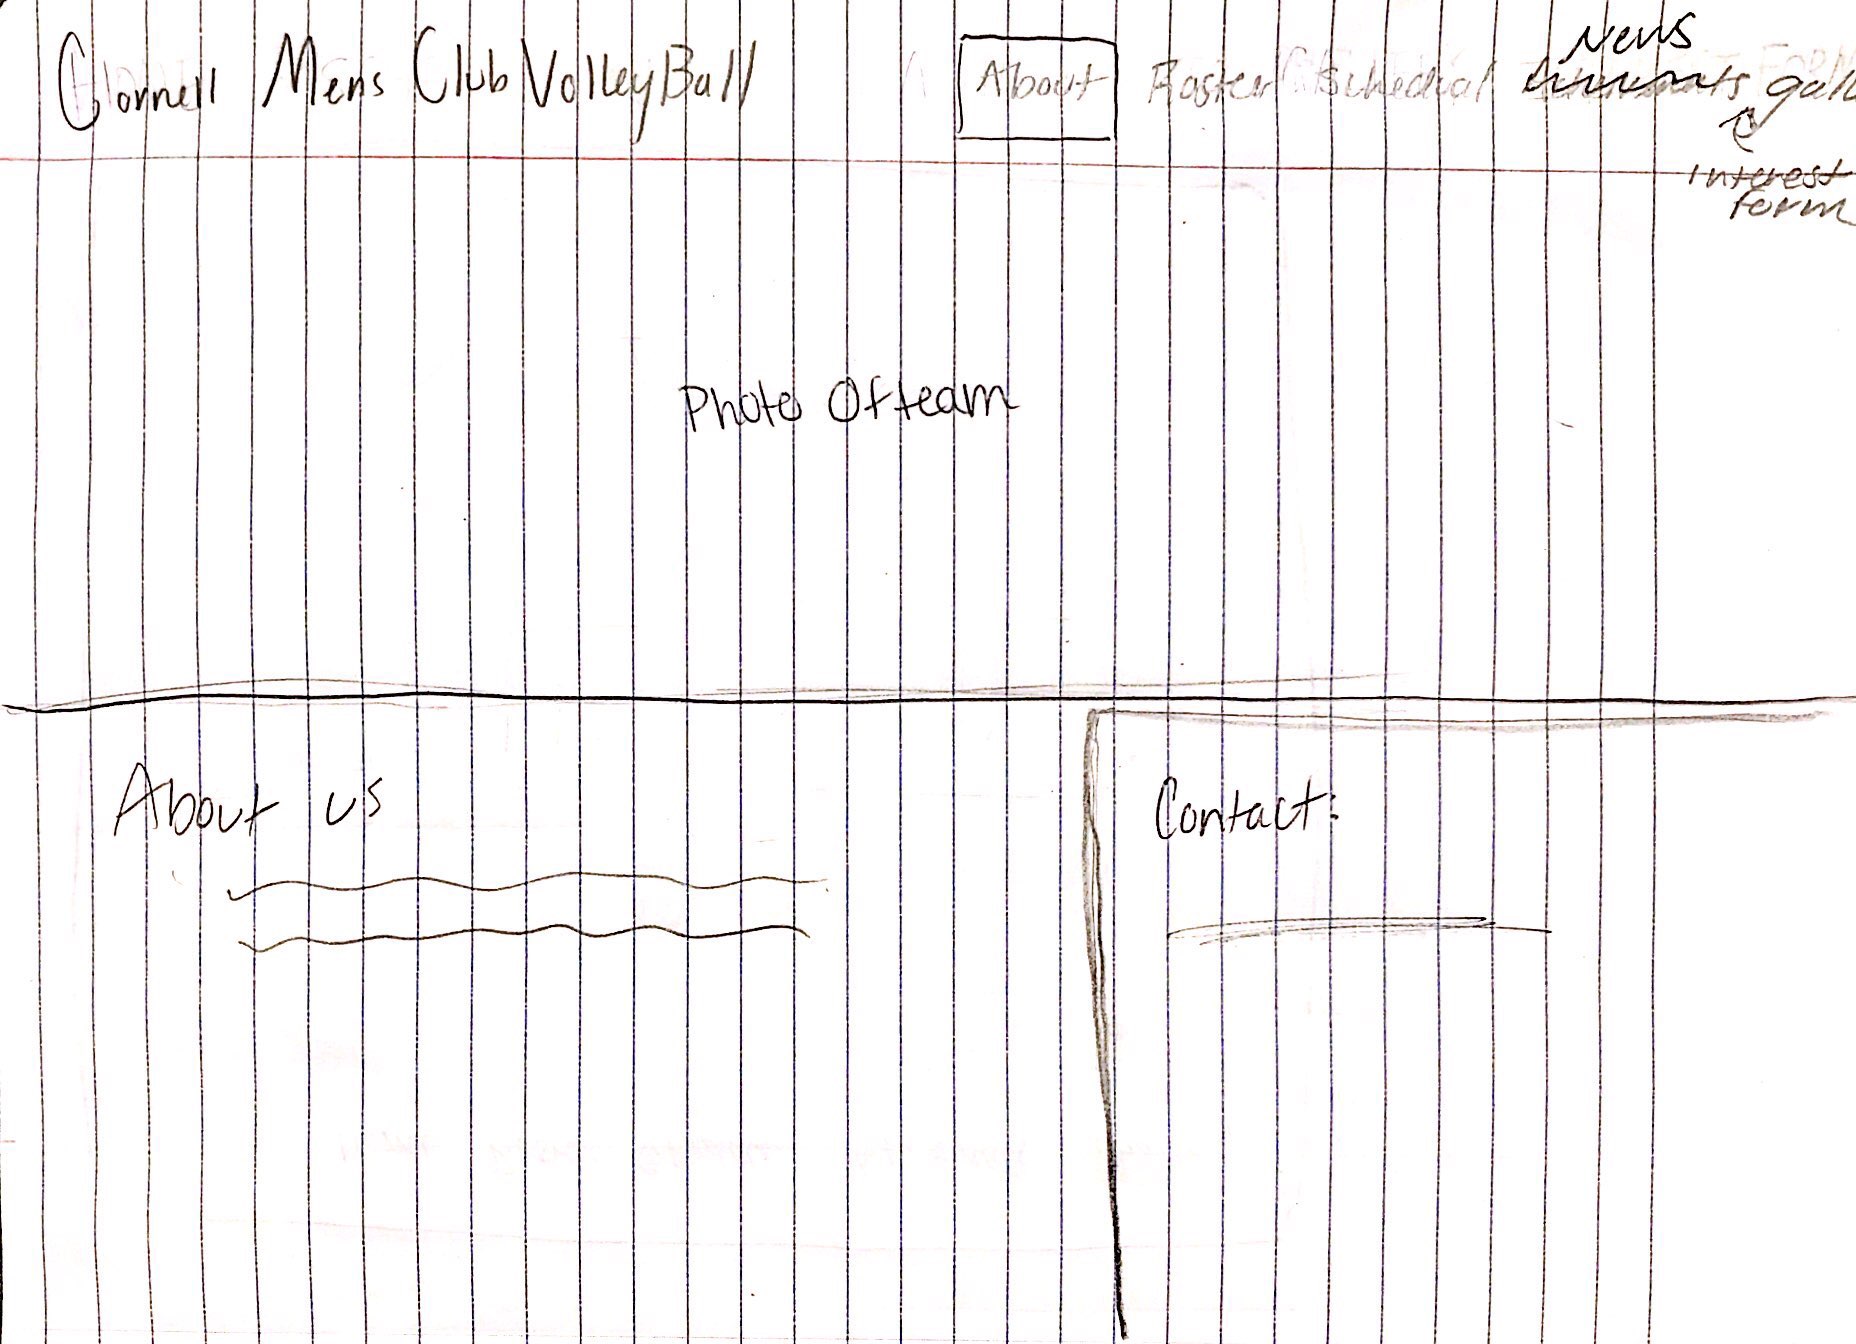 News
Cornell Mens Club VolleyBall About Roster Schedual gall
interest
form
Photo Of team
About us
Contact: